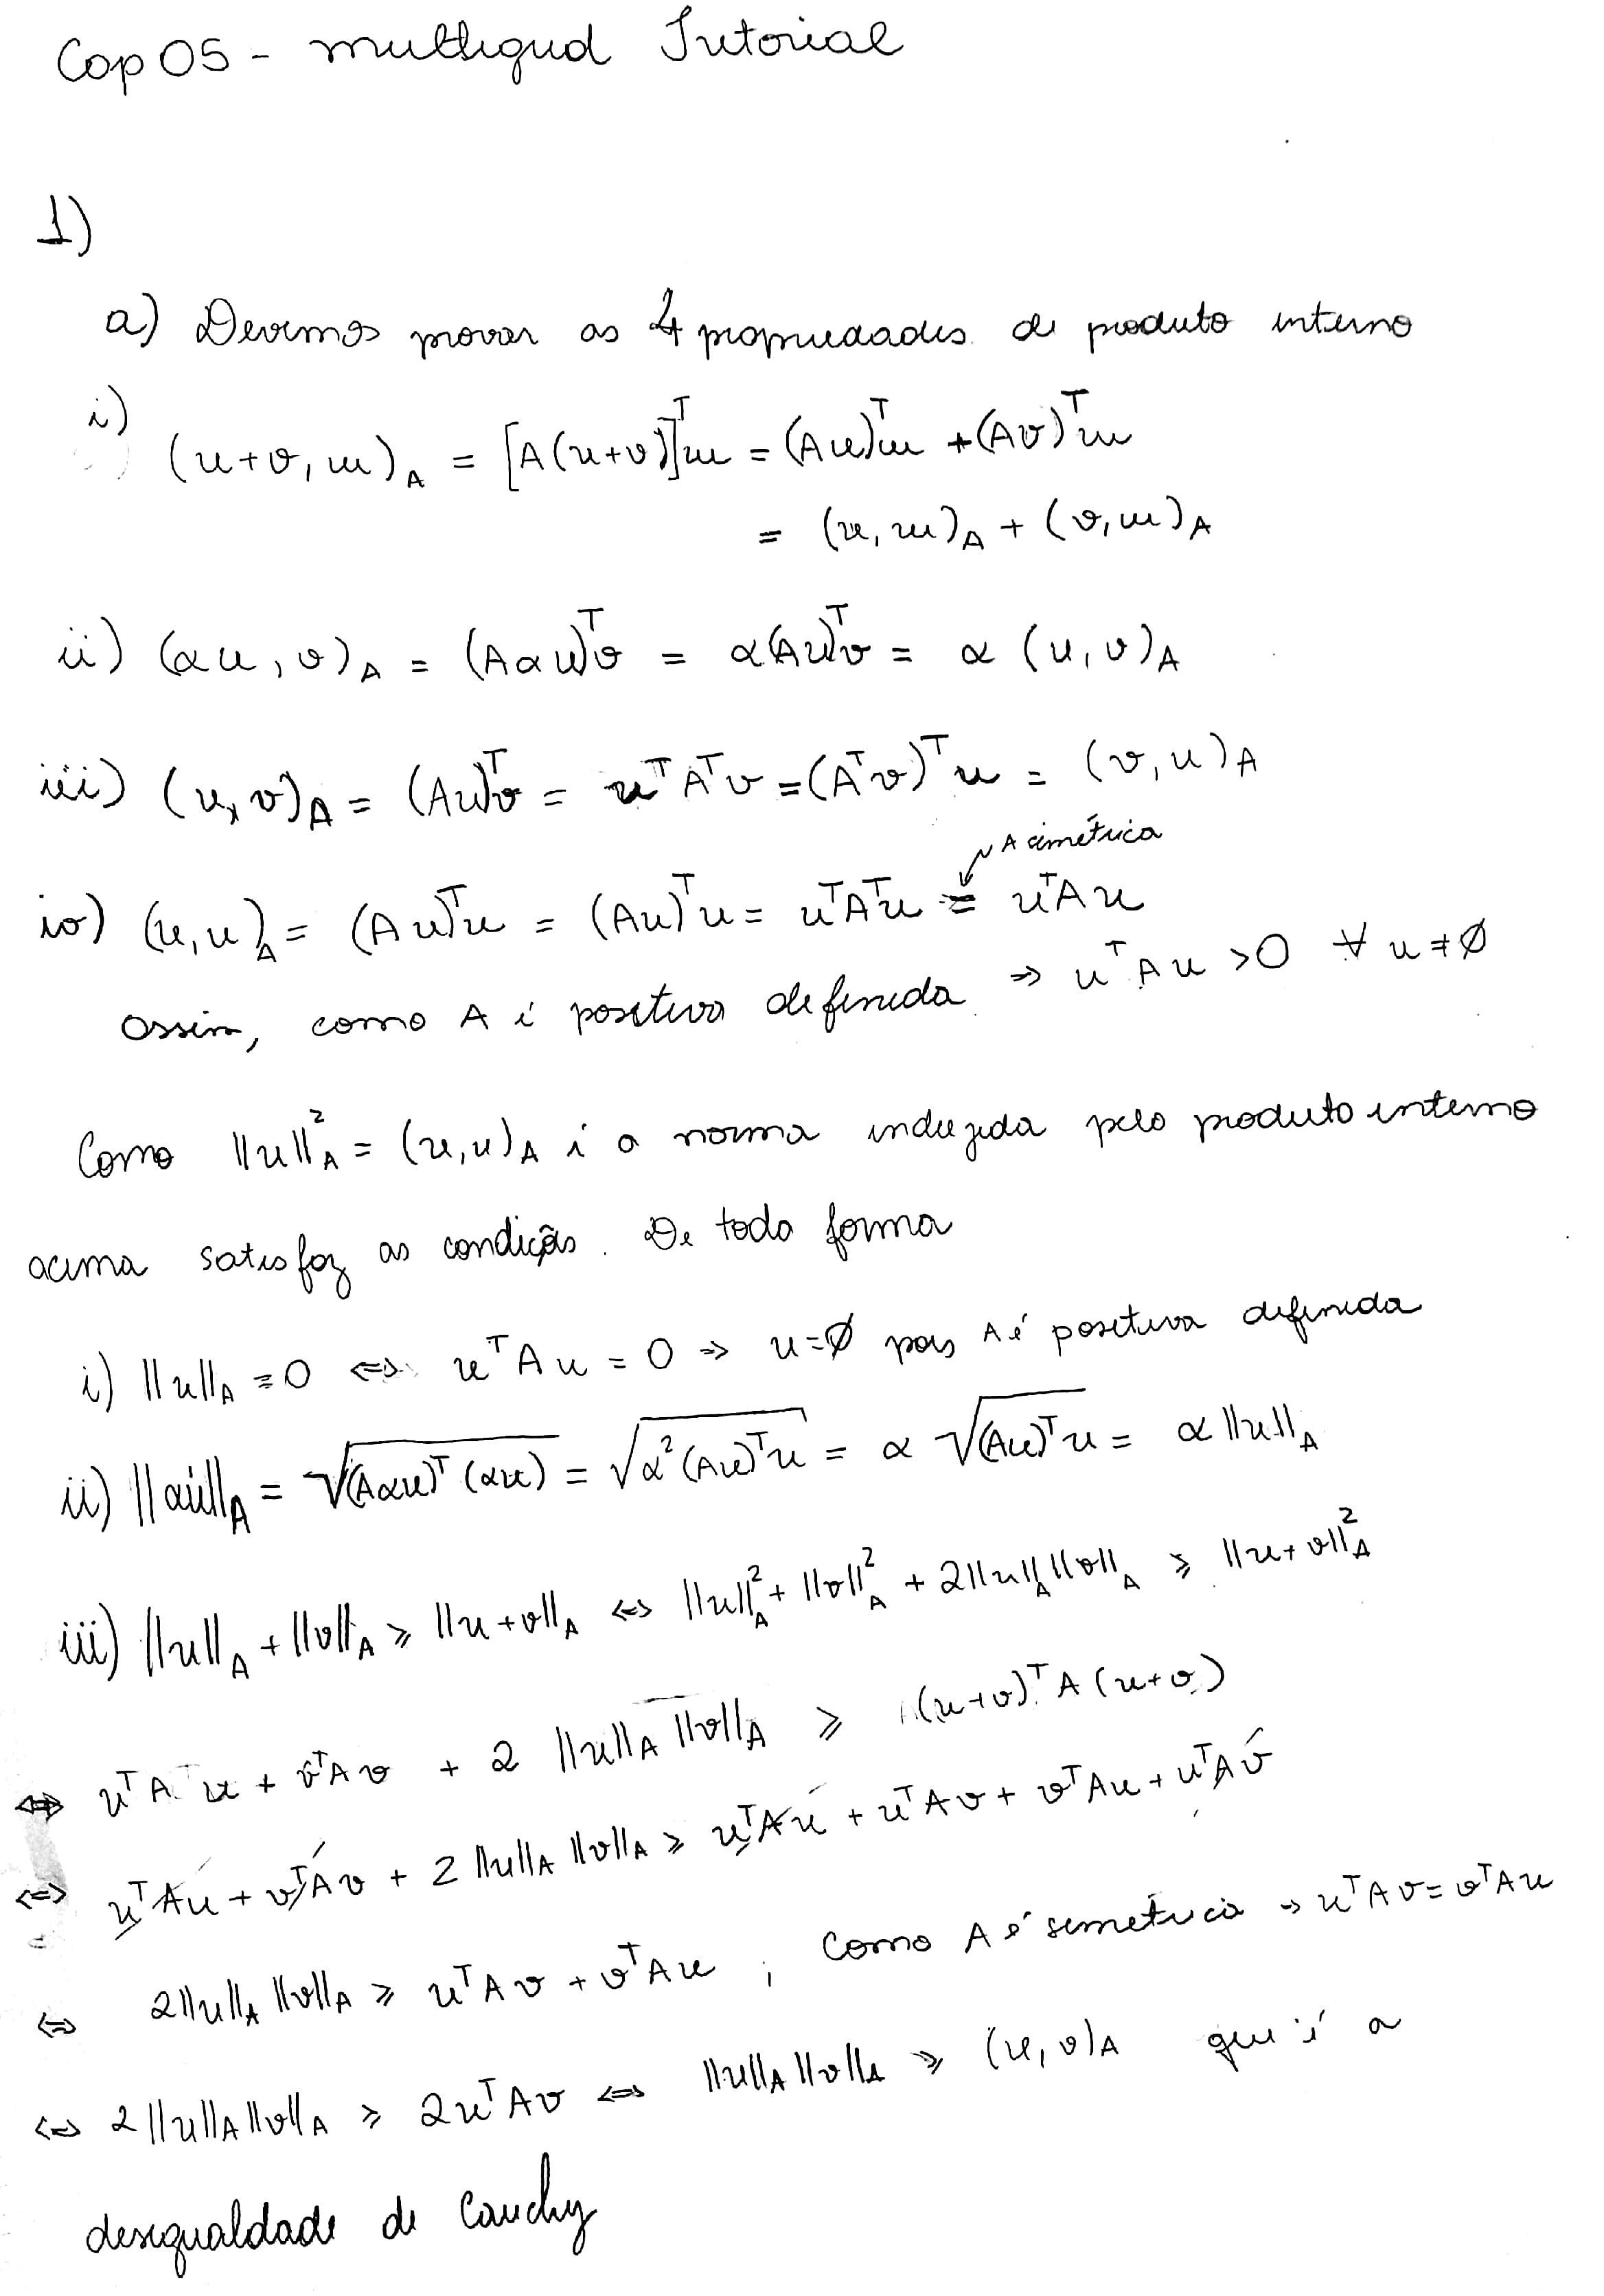 Cap 05 - Multigrid Tutorial
1)
a) Devemos provar as 4 propriedades de produto interno
i)
(u+v, w)_A = [A(u+v)]^T w = (Au)^T w + (Av)^T w
= (u, w)_A + (v, w)_A
ii) (αu, v)_A = (Aαu)^T v = α(Au)^T v = α (u, v)_A
iii) (u, v)_A = (Au)^T v = u^T A^T v = (A^T v)^T u = (v, u)_A
A simétrica
iv) (u, u)_A = (Au)^T u = (Au)^T u = u^T A^T u = u^T A u
assim, como A é positiva definida ⇒ u^T A u > 0 ∀ u ≠ ∅
Como ||u||²_A = (u, u)_A é a norma induzida pelo produto interno
acima satisfaz as condição. De toda forma
i) ||u||_A = 0 ⇔ u^T A u = 0 ⇒ u = ∅ pois A é positiva definida
ii) ||αu||_A = √((Aαu)^T (αu)) = √(α² (Au)^T u) = α √((Au)^T u) = α ||u||_A
iii) ||u||_A + ||v||_A ≥ ||u+v||_A ⇔ ||u||²_A + ||v||²_A + 2||u||_A ||v||_A ≥ ||u+v||²_A
⇔ u^T A u + v^T A v + 2 ||u||_A ||v||_A ≥ (u+v)^T A (u+v)
⇔ u^T A u + v^T A v + 2 ||u||_A ||v||_A ≥ u^T A u + u^T A v + v^T A u + u^T A v
⇔ 2||u||_A ||v||_A ≥ u^T A v + v^T A u ; Como A é simétrica → u^T A v = v^T A u
⇔ 2 ||u||_A ||v||_A ≥ 2 u^T A v ⇔ ||u||_A ||v||_A ≥ (u, v)_A que é a
desigualdade de Cauchy